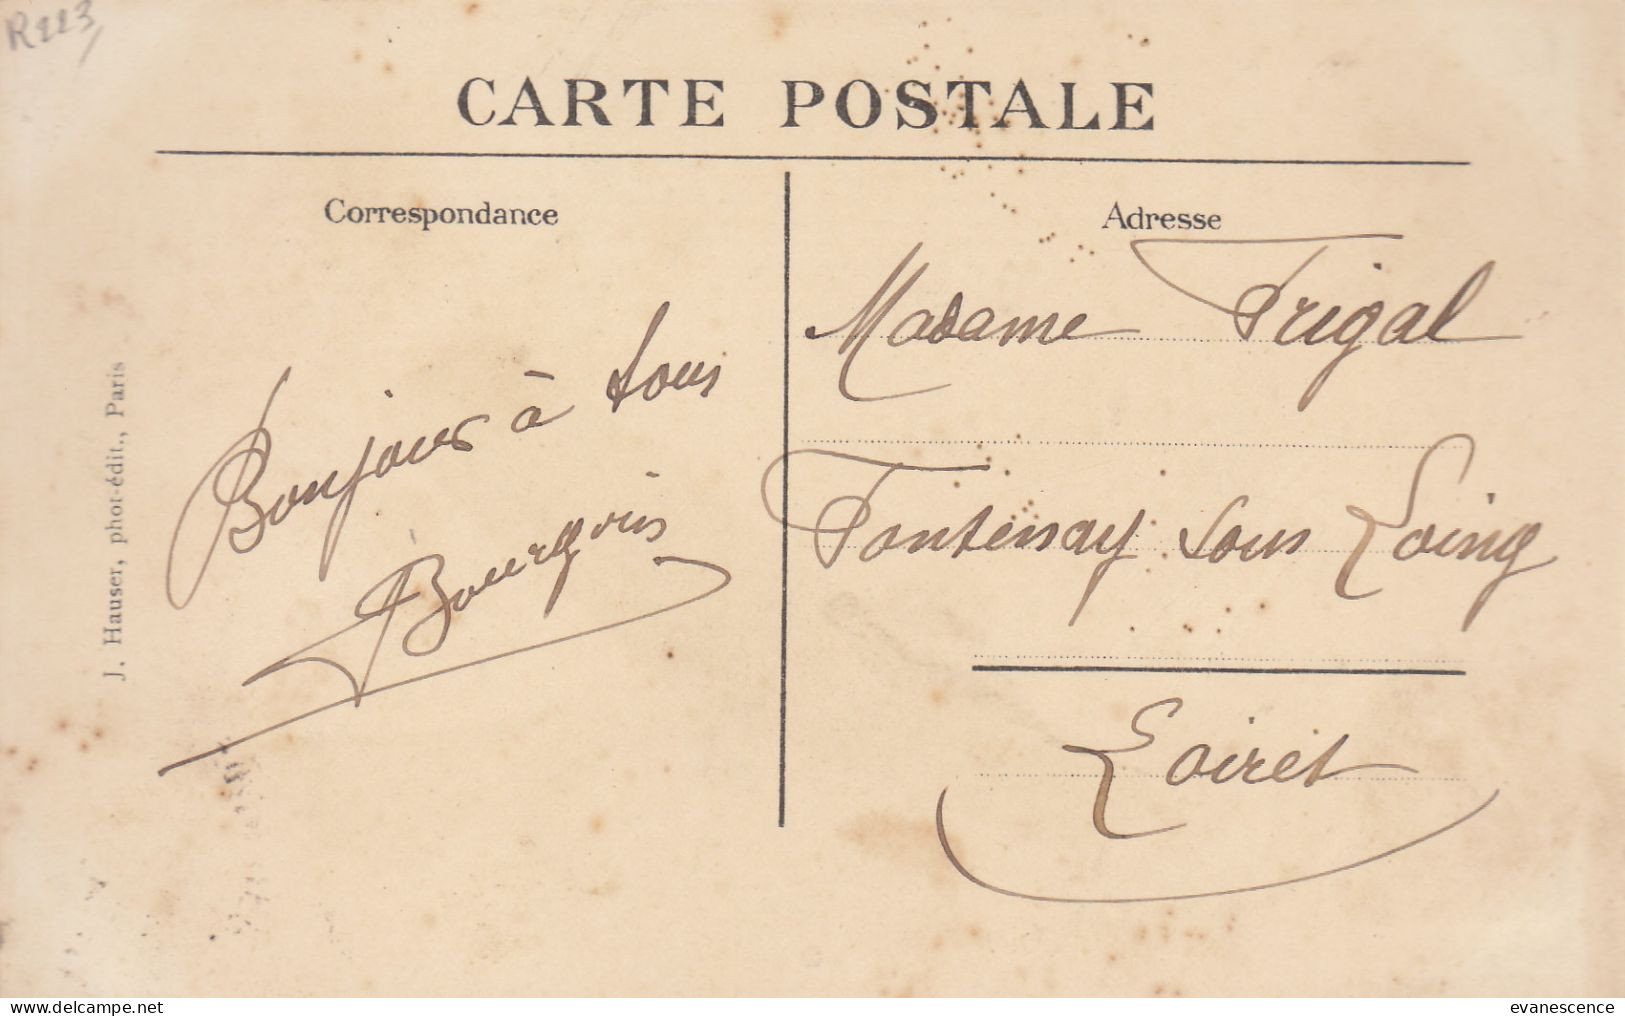 R223
CARTE POSTALE
Correspondance
Adresse
Bonjour à tous
Bourgoin
Madame Frigal
Fontenay sous Loing
Loiret
J. Hauser, phot-édit., Paris
www.delcampe.net
evanescence